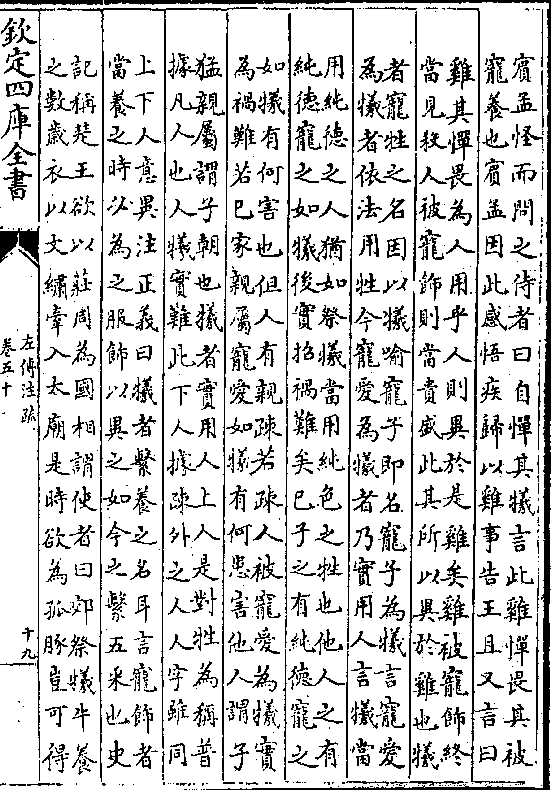 賓孟怪而問之侍者曰自憚其犧言此雞憚畏其被
寵養也賓孟因此感悟疾歸以雞事告王且又言曰
雞其憚畏為人用乎人則異於是雞矣雞被寵飾終
當見殺人被寵飾則當貴盛此其所以異於雞也犧
者寵牲之名因以犧喻寵子即名寵子為犧言寵愛
為犧者依法用牲今寵愛為犧者乃實用人言犧當
用純德之人猶如祭犧當用純色之牲也他人之有
純德寵之如犧後實招禍難矣已子之有純德寵之
如犧有何害也但人有親疎若疎人被寵愛為犧實
為禍難若已家親屬寵愛如犧有何患害他人謂子
猛親屬謂子朝也犧者實用人上人是對牲為稱普
據凡人也人犧實難此下人據疎外之人人字雖同
上下人意異注正義曰犧者繫養之名耳言寵飾者
當養之時必為之服飾以異之如今之繫五采也史
記稱楚王欲以莊周為國相謂使者曰郊祭犧牛養
之數歲衣以文繡牽入太廟是時欲為孤豚豈可得
欽定四庫全書
左傳注疏
卷五十
十九